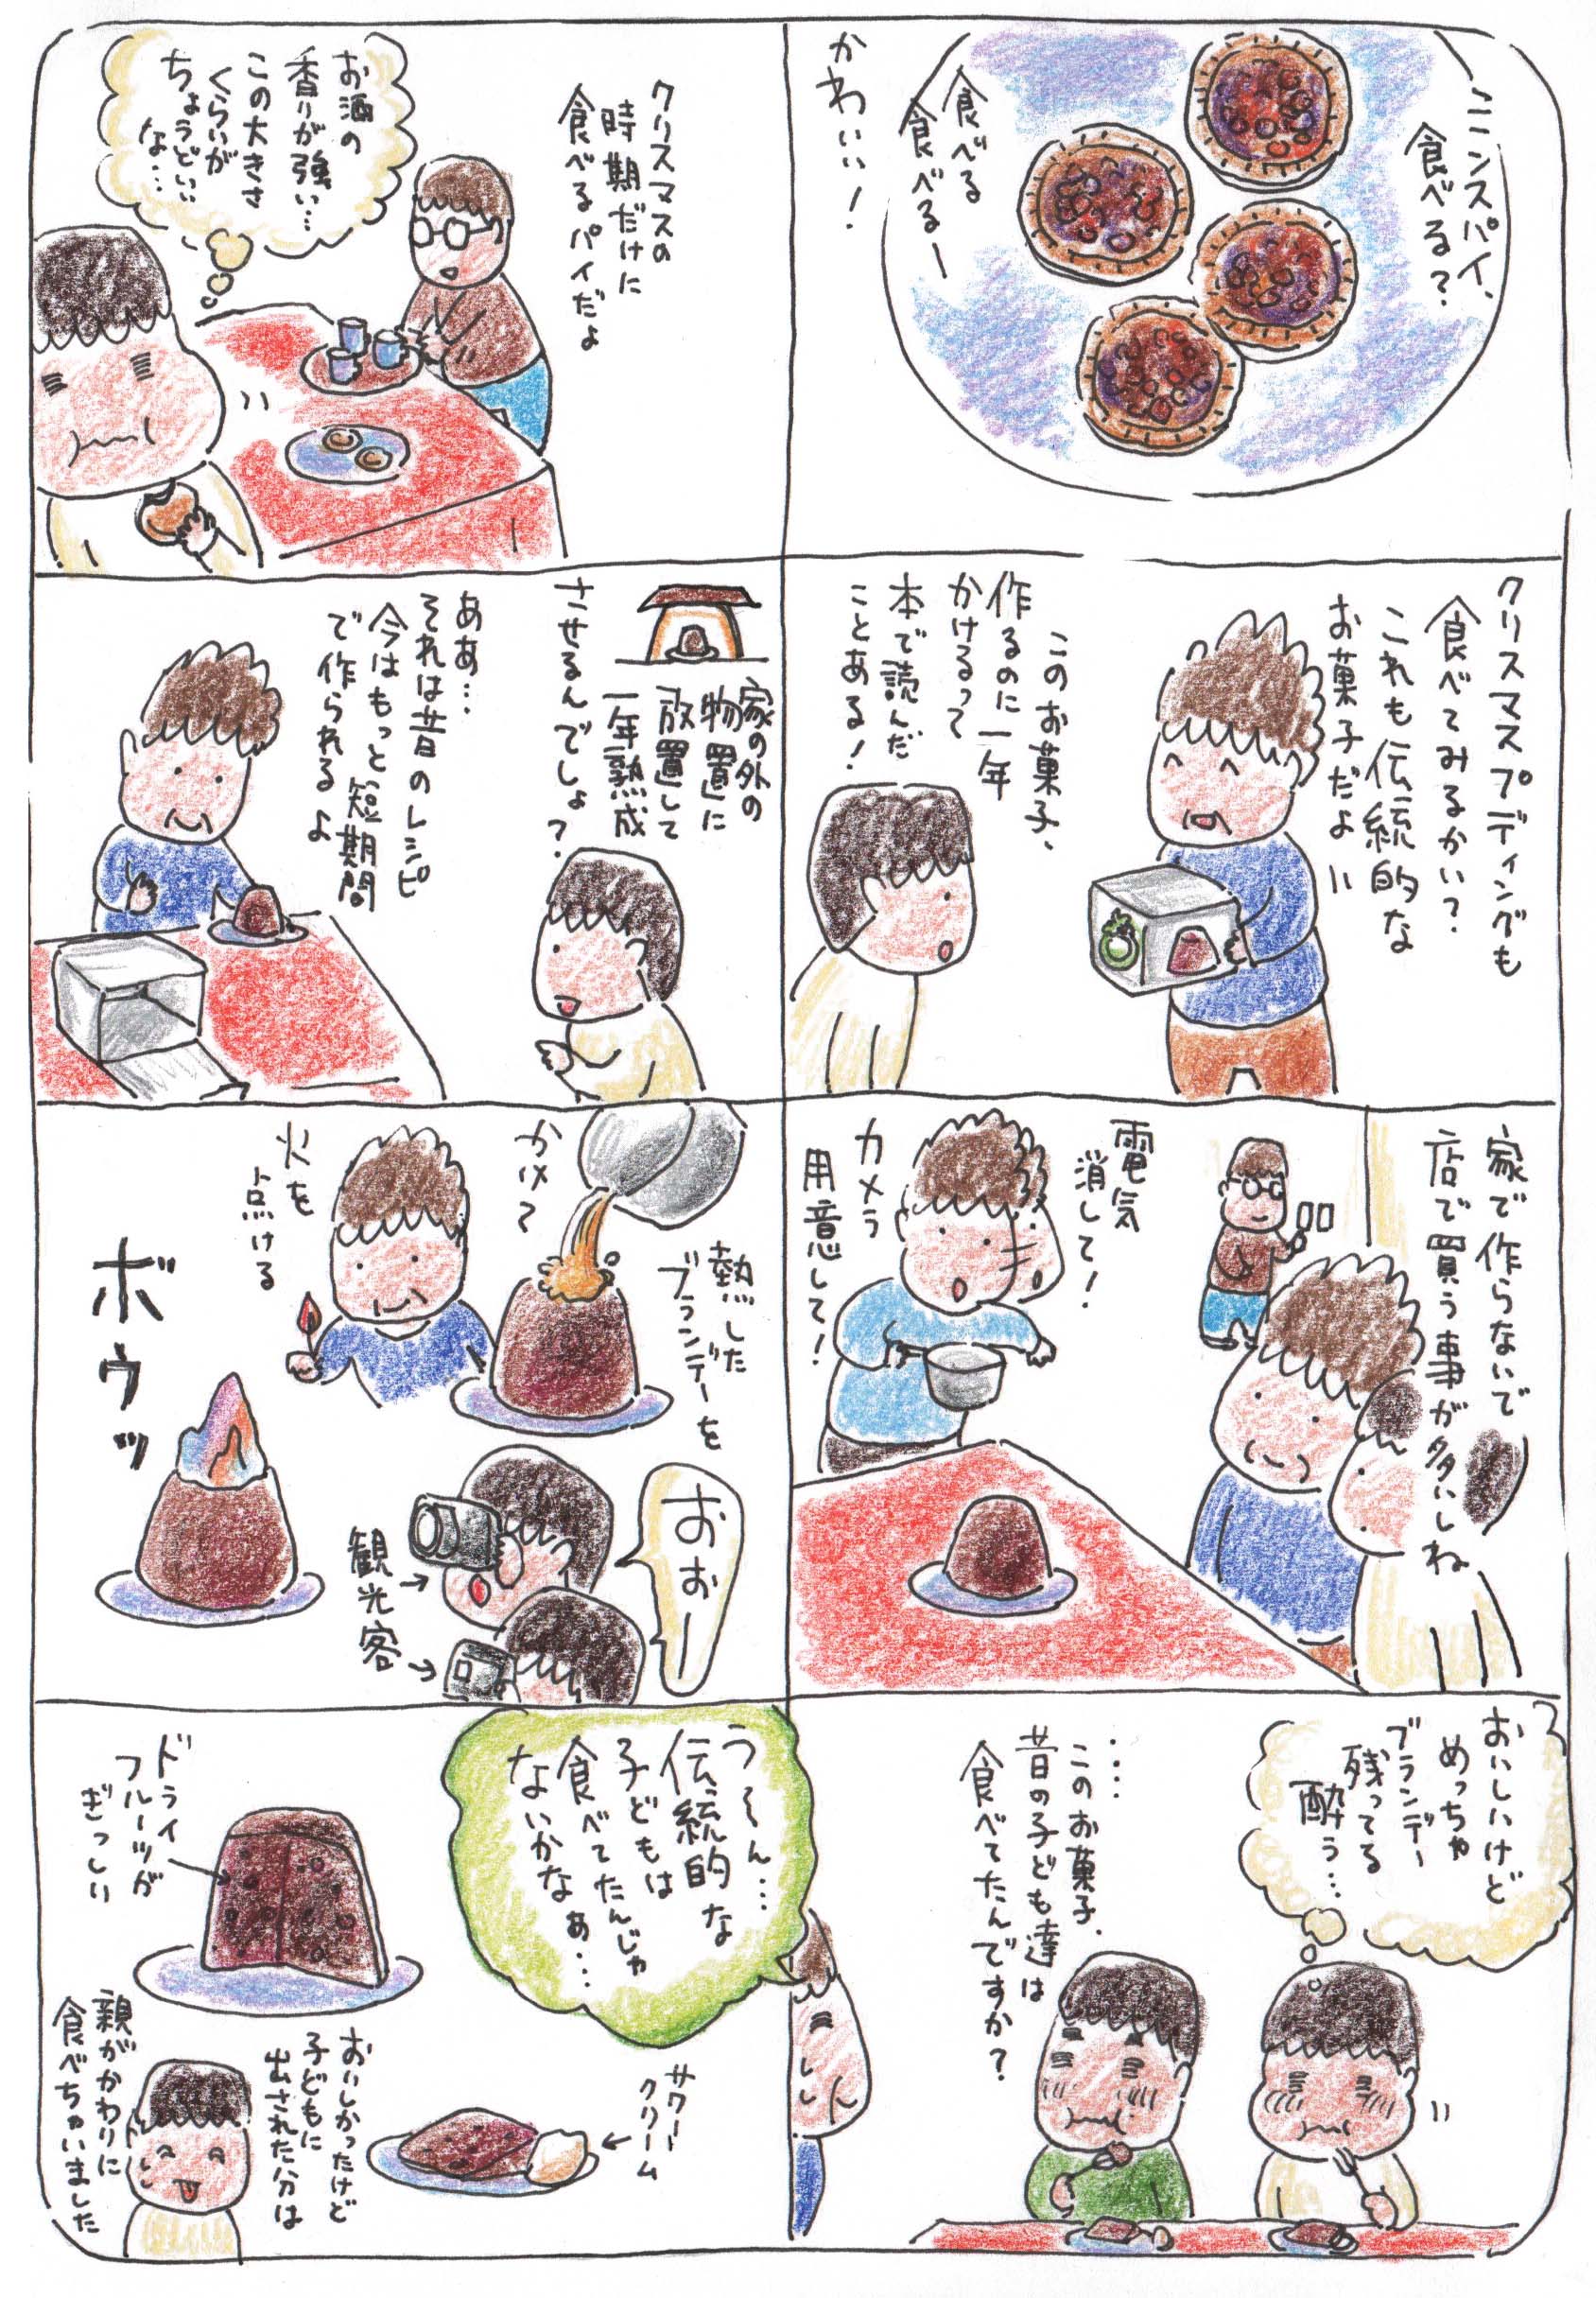 ミンスパイ、
食べる?
食べる
食べるー
かわいい!
クリスマスの
時期だけに
食べるパイだよ
お酒の
香りが強い…
この大きさ
くらいが
ちょうどいい
な…
クリスマスプディングも
食べてみるかい?
これも伝統的な
お菓子だよ
このお菓子、
作るのに一年
かけるって
本で読んだ
ことある!
家の外の
物置に
放置して
一年熟成
させるんでしょ?
ああ…
それは昔のレシピ
今はもっと短期間
で作られるよ
家で作らないで
店で買う事が多いしね
電気
消して!
カメラ
用意して!
熱した
ブランデーを
かけて
火を
点ける
ボウッ
おおー
観光客
おいしいけど
めっちゃ
ブランデー
残ってる
酔う…
……
このお菓子、
昔の子ども達は
食べてたんですか?
う〜ん…
伝統的な
子どもは
食べてたんじゃ
ないかなぁ…
ドライ
フルーツが
ぎっしり
サワー
クリーム
おいしかったけど
子どもに
出された分は
親がかわりに
食べちゃいました